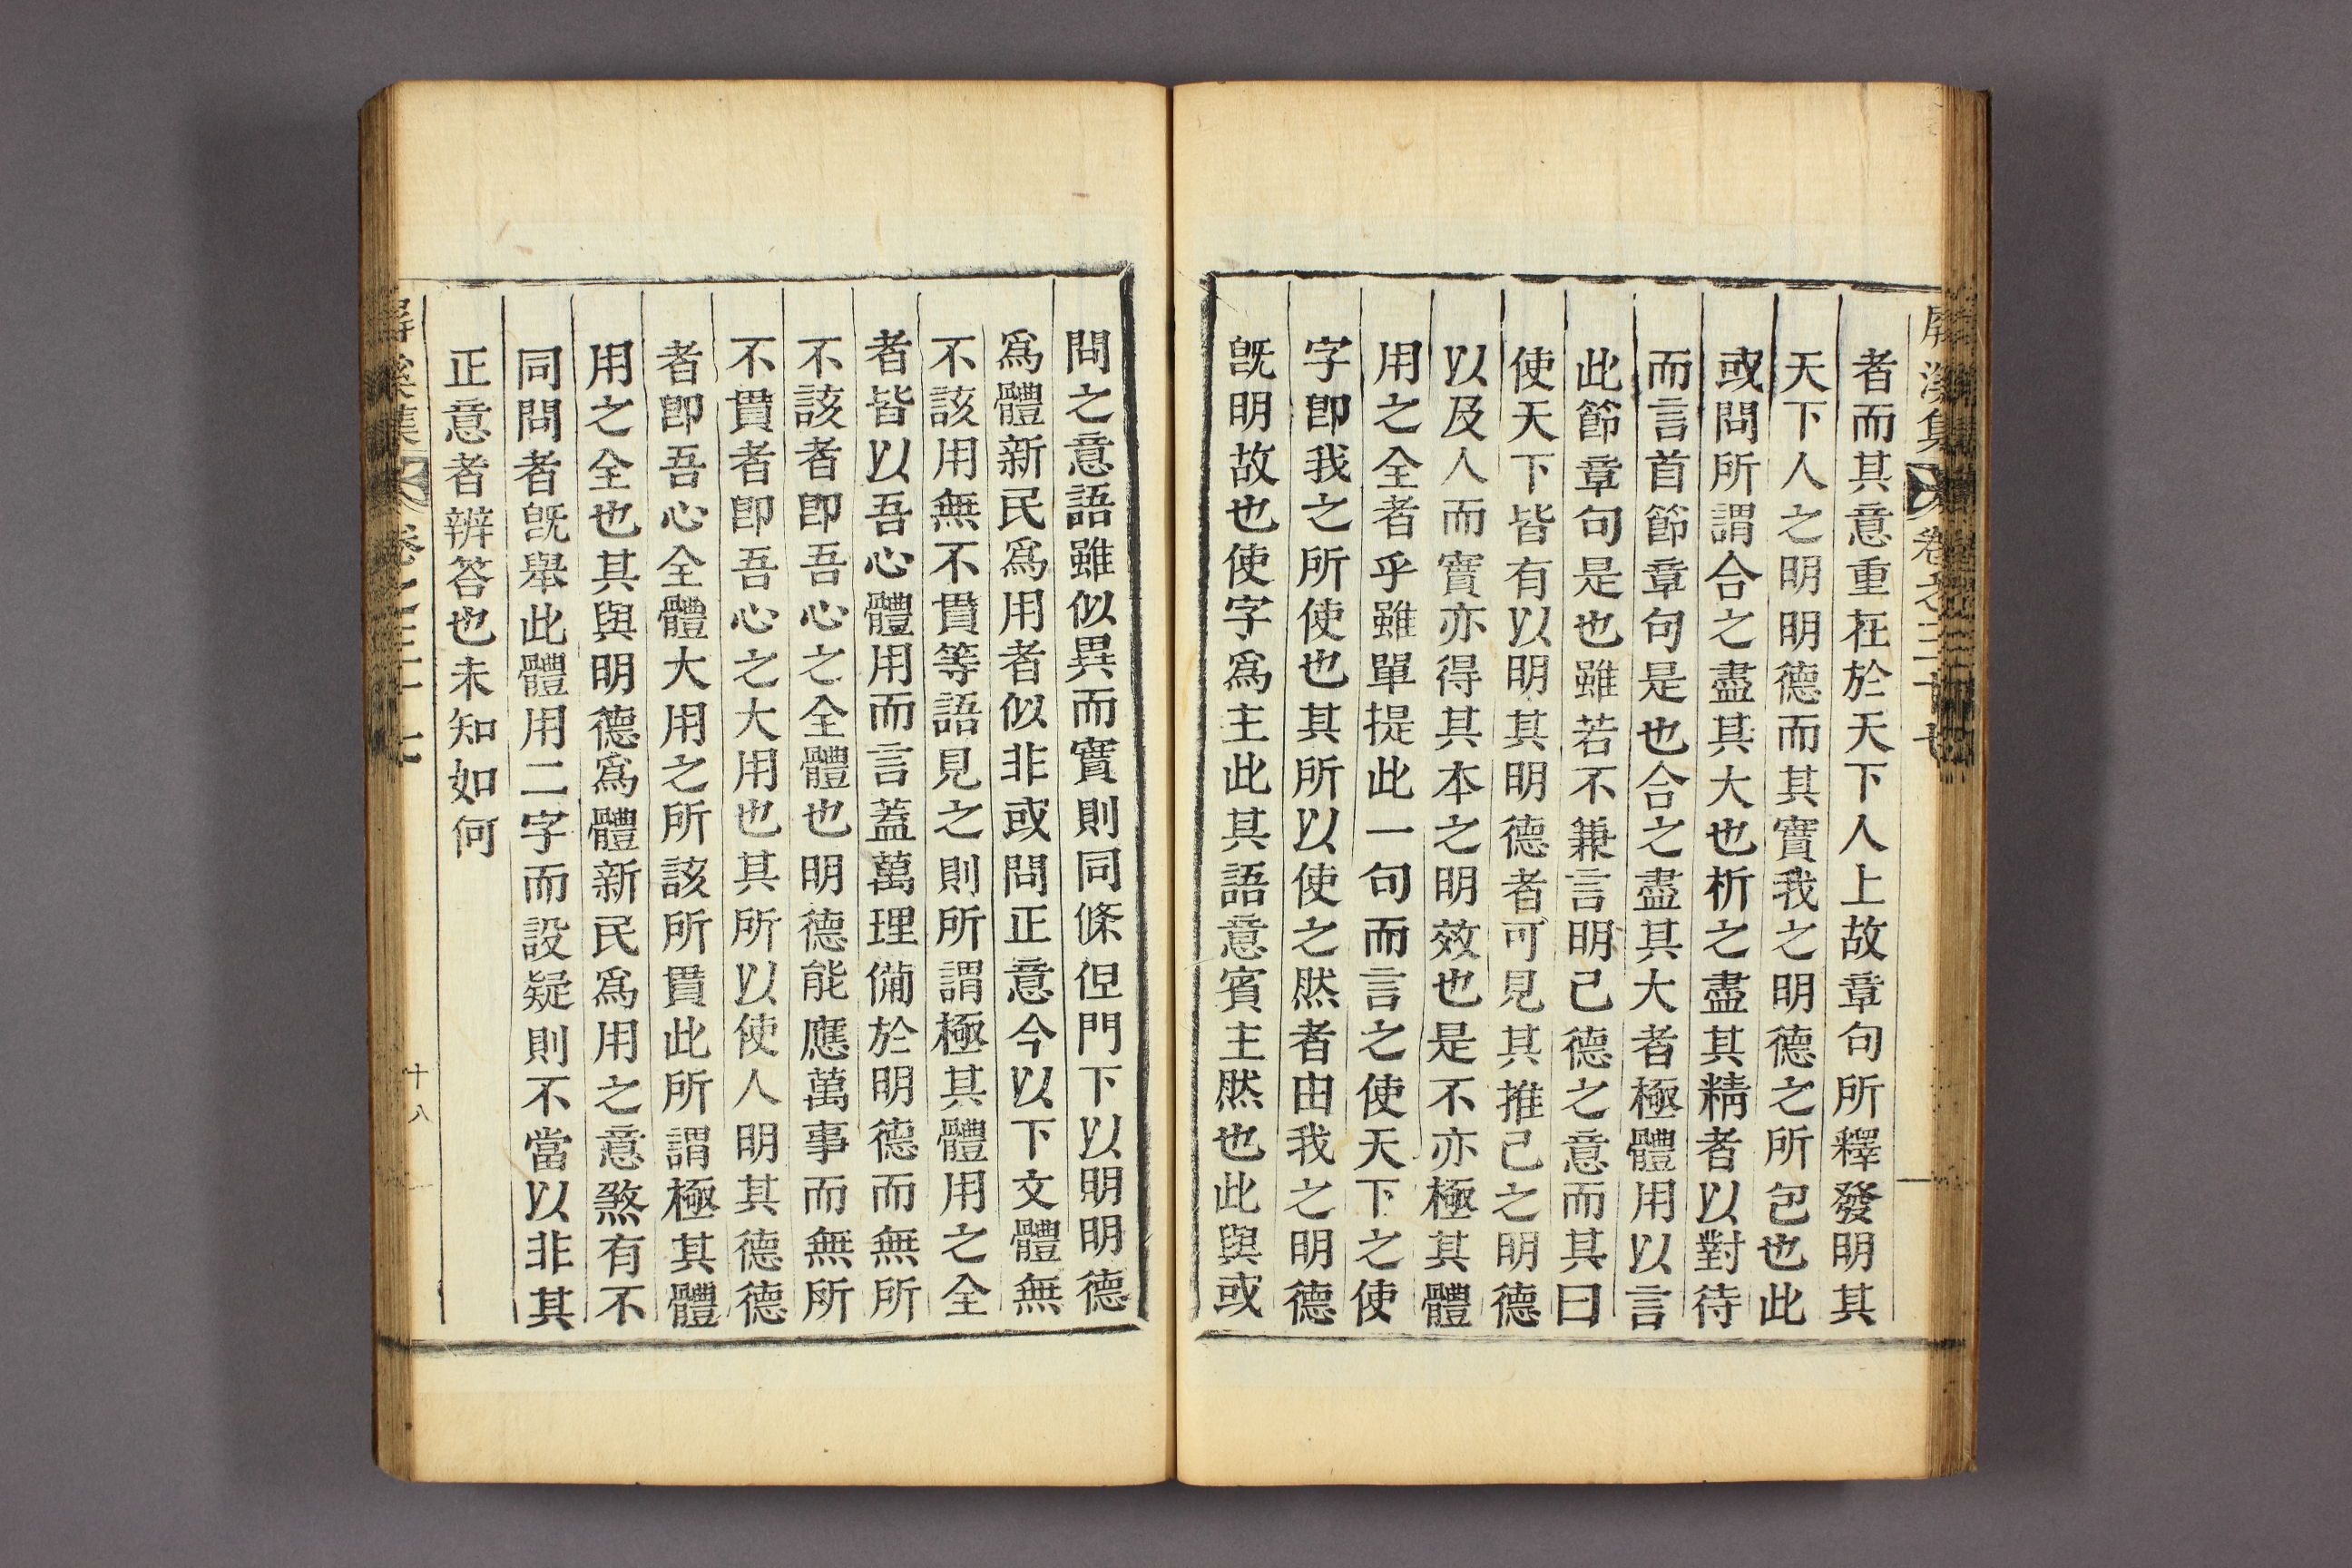 屛溪集 卷之二十七
者而其意重在於天下人上故章句所釋發明其
天下人之明明德而其實我之明德之所包也此
或問所謂合之盡其大也析之盡其精者以對待
而言首節章句是也合之盡其大者極體用以言
此節章句是也雖若不兼言明己德之意而其曰
使天下皆有以明其明德者可見其推己之明德
以及人而實亦得其本之明效也是不亦極其體
用之全者乎雖單提此一句而言之使天下之使
字卽我之所使也其所以使之然者由我之明德
旣明故也使字爲主此其語意賓主然也此與或
問之意語雖似異而實則同條但門下以明明德
爲體新民爲用者似非或問正意今以下文體無
不該用無不貫等語見之則所謂極其體用之全
者皆以吾心體用而言蓋萬理備於明德而無所
不該者卽吾心之全體也明德能應萬事而無所
不貫者卽吾心之大用也其所以使人明其德德
者卽吾心全體大用之所該所貫此所謂極其體
用之全也其與明德爲體新民爲用之意煞有不
同問者旣舉此體用二字而設疑則不當以非其
正意者辨答也未知如何
屛溪集 卷之二十七
十八